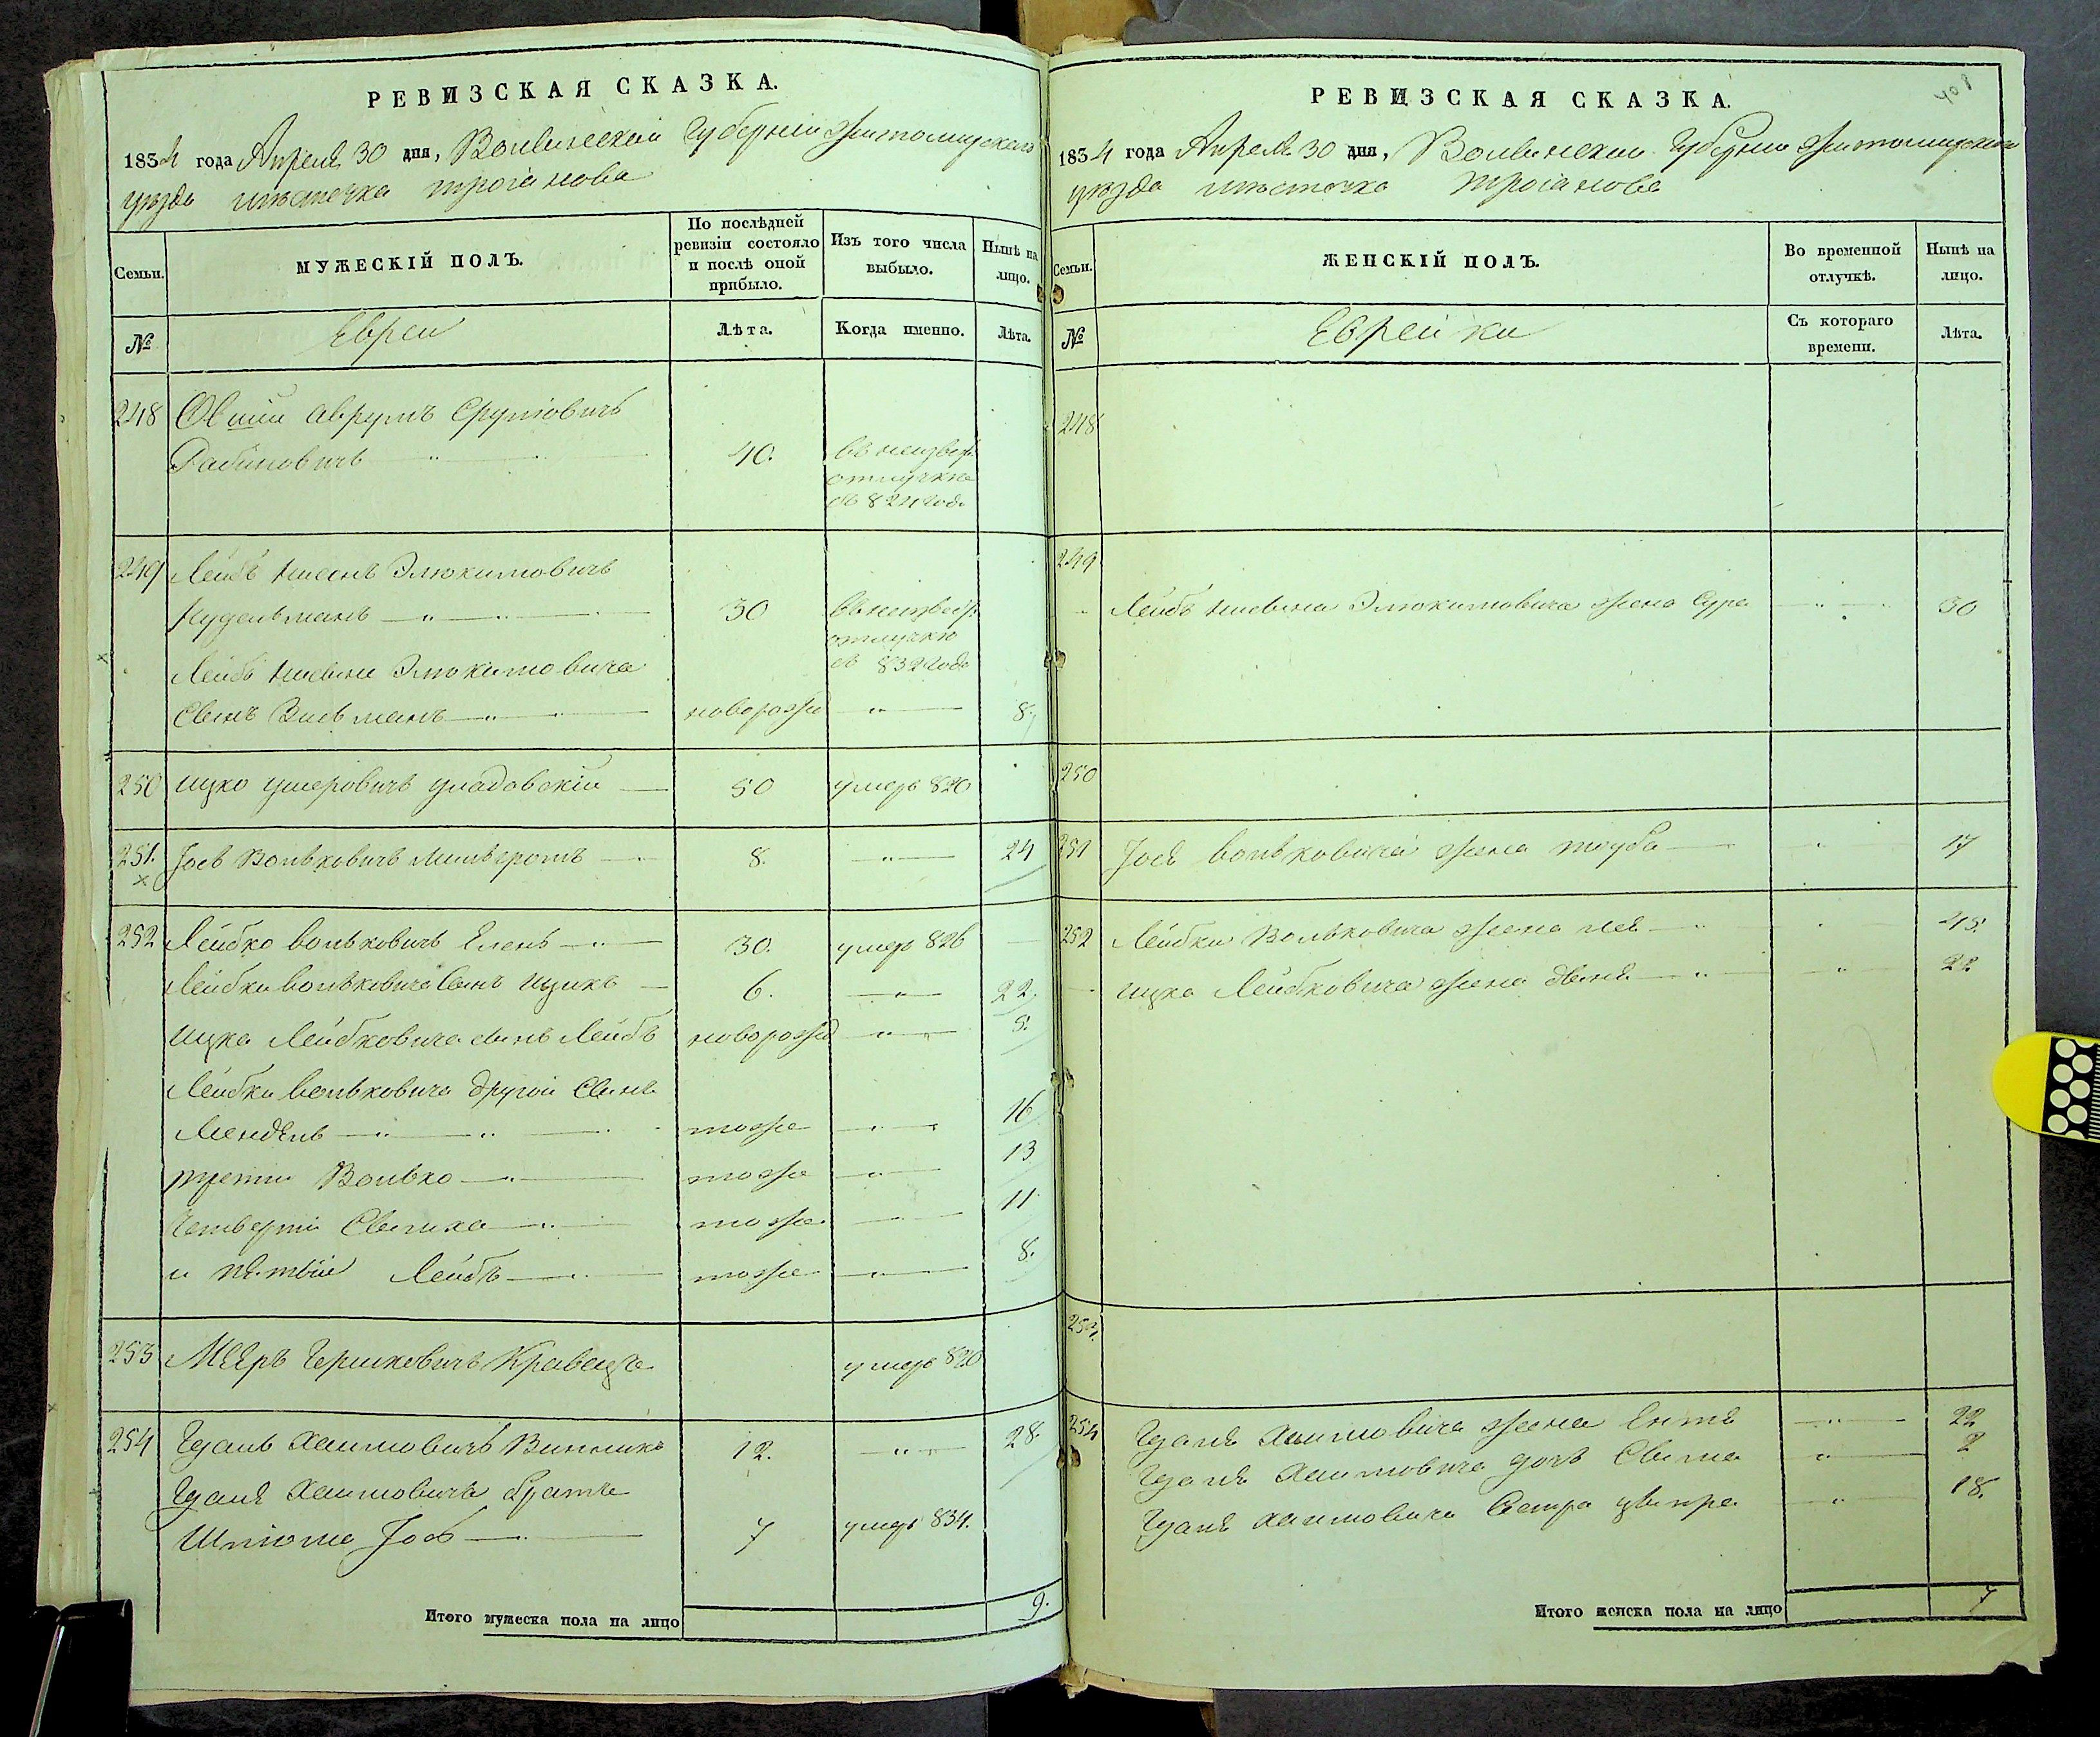 РЕВИЗСКАЯ СКАЗКА.
1834 года Апреля 30 дня, Волынской Губернии Житомирского
уезда местечка Троянова
Семьи.
МУЖЕСКІЙ ПОЛЪ.
По послѣдней ревизіи состояло и послѣ оной прибыло.
Изъ того числа выбыло.
Нынѣ на лицо.
№
Евреи
Лѣта.
Когда именно.
Лѣта.
248 Овшій Аврумъ Срулiовичъ
Рабиновичъ 40. въ неизвест.
отлучке
съ 824 года
249 Лейбъ Нисонъ Элюкимовичъ
Нудельманъ 30 въ неизвест.
отлучке
съ 832 года
Лейбъ Нисона Элюкимовича
Сынъ Зисьманъ новорожд 8.
250 Ицко Ушеровичъ Уладовскій 50 умеръ 820
251. Іосъ Вольковичъ Мильгромъ 8. 24
252 Лейбко Вольковичъ Елень 30. умеръ 826
Лейбки Вольковича Сынъ Ицикъ 6. 22.
Ицка Лейбковича сынъ Лейбъ новорожд 5.
Лейбки Вольковича другой Сынъ
Мендель тоже 16
третiй Волько тоже 13
Четвертiй тоже 11.
и пятый Лейбъ тоже 8.
253 Мееръ Гершковичъ Кравецъ умеръ 820
254 Хаимовичъ Винникъ 12. 28.
Хаимовича братъ
Шлiома Іосъ 7 умеръ 834.
Итого мужеска пола на лицо 9.
408
РЕВИЗСКАЯ СКАЗКА.
1834 года Апреля 30 дня, Волынской Губернии Житомирского
уезда местечка Троянова
Семьи.
ЖЕНСКІЙ ПОЛЪ.
Во временной отлучкѣ.
Нынѣ на лицо.
№
Еврейки
Съ котораго времени.
Лѣта.
248
249
Лейбъ Нисона Элюкимовича жена Сура 30
250
251 Іося Вольковича жена Тауба 17
252 Лейбки Вольковича жена Лея 45.
Ицка Лейбковича жена 22
253.
254 Хаимовича жена Ента 22
Хаимовича дочь Сима 2
Хаимовича Сестра Ципра 18.
Итого женска пола на лицо 7